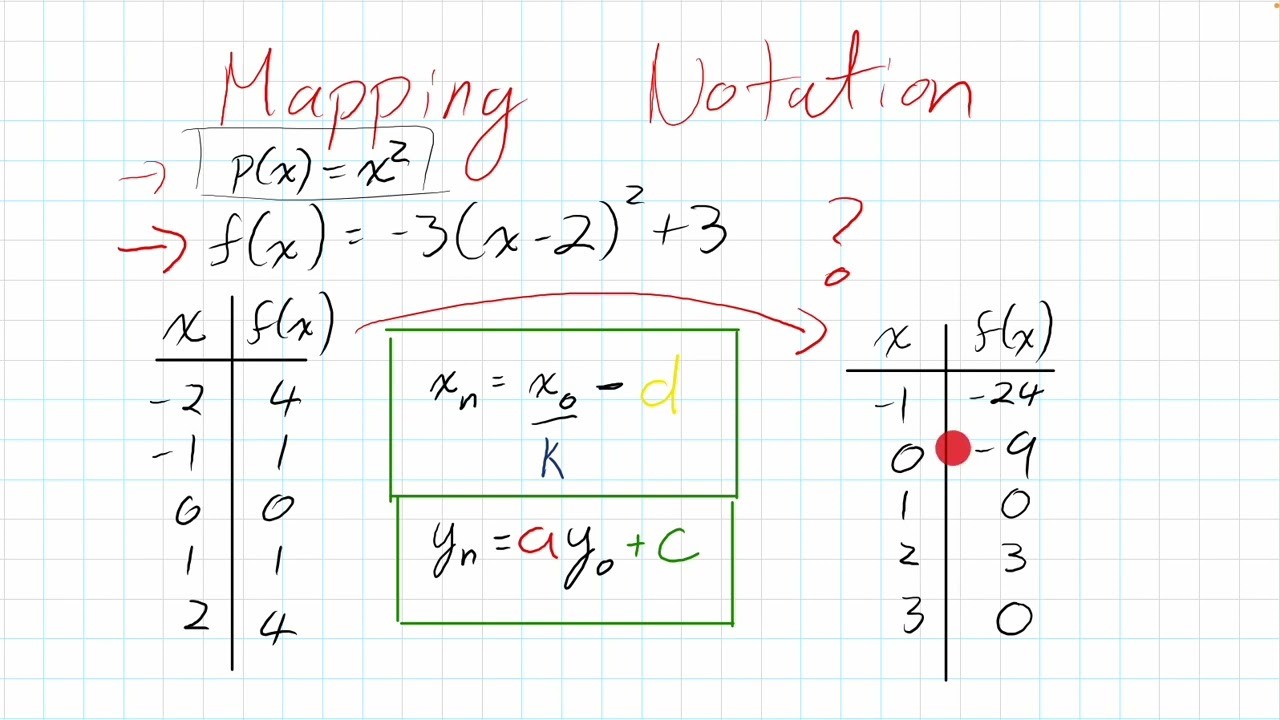 Mapping Notation
→ p(x) = x²
→ f(x) = -3(x-2)² + 3 ?
x f(x)
-2 4
-1 1
0 0
1 1
2 4
xₙ = x₀/k - d
yₙ = ay₀ + c
x f(x)
-1 -24
0 -9
1 0
2 3
3 0